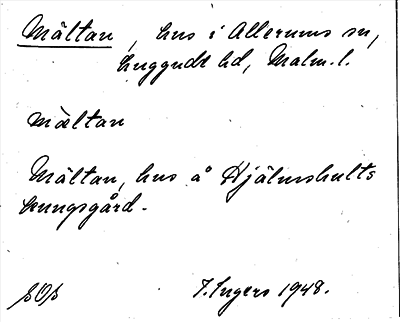 Mältan, hus i Allerums sn,
Luggude hd, Malm. l.
mæ̀ltan
Mältan, hus å Hjälmshults
kungsgård.
SOS I. Ingers 1948.